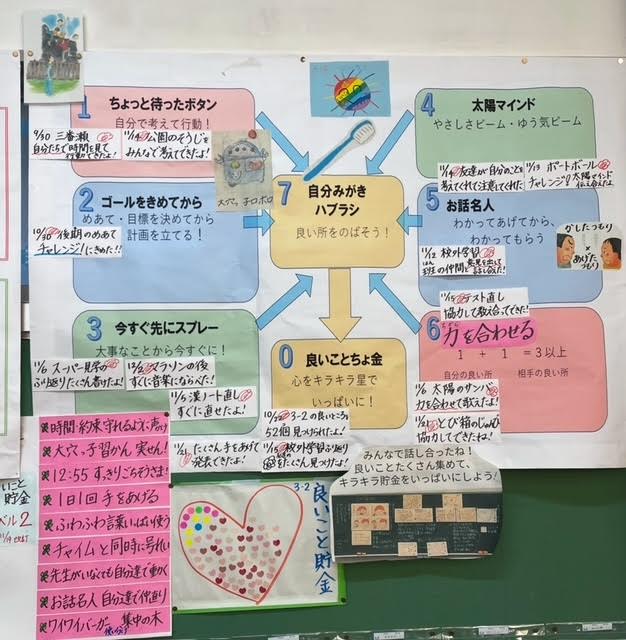 1 ちょっと待ったボタン
自分で考えて行動！
9/30 三番瀬
自分たちで時間を見て
行動できたよ！
公園のそうじを
みんなで考えてできたよ！
2 ゴールをきめてから
めあて・目標を決めてから
計画を立てる！
10/30 後期のめあて
チャレンジ！にきめた!!
3 今すぐ先にスプレー
大事なことから今すぐに！
11/6 スーパー見学の
ふり返りたくさん書けたよ！
マラソンの後
すぐに音楽にならべた！
11/5 漢ノート直し
すぐに直せたよ！
7 自分みがき
ハブラシ
良い所をのばそう！
0 良いことちょ金
心をキラキラ星で
いっぱいに！
3-2の良いところ
52個 見つけられたよ！
たくさん手をあげて
発表できたよ！
校外学習ふり返り
をたくさん見つけたよ！
4 太陽マインド
やさしさビーム・ゆう気ビーム
友達が自分のことを
考えてくれて注意してくれた
ポートボール
チャレンジ！太陽マインド
5 お話名人
わかってあげてから、
わかってもらう
11/12 校外学習
班の仲間と意見を出して
話し合えた！
かしたつもり
あげたつもり
テスト直し
協力して教え合ってできた！
6 力を合わせる
1 + 1 = 3以上
自分の良い所 相手の良い所
11/6 太陽のサンバ
力を合わせて歌えたよ！
とび箱のじゅんび
協力してできたね！
みんなで話し合ったね！
良いことたくさん集めて、
キラキラ貯金をいっぱいにしよう！
3-2 良いこと貯金
時間・約束守れるよ、声かけ
大穴っ子習かん 実せん！
12:55 すっきりごちそうさま！
1日1回 手をあげる
ふわふわ言葉いっぱい使う
チャイムと同時に号れい
先生がいなくても自分達で動く
お話名人 自分達で仲直り
ワイワイバーガー 集中の木